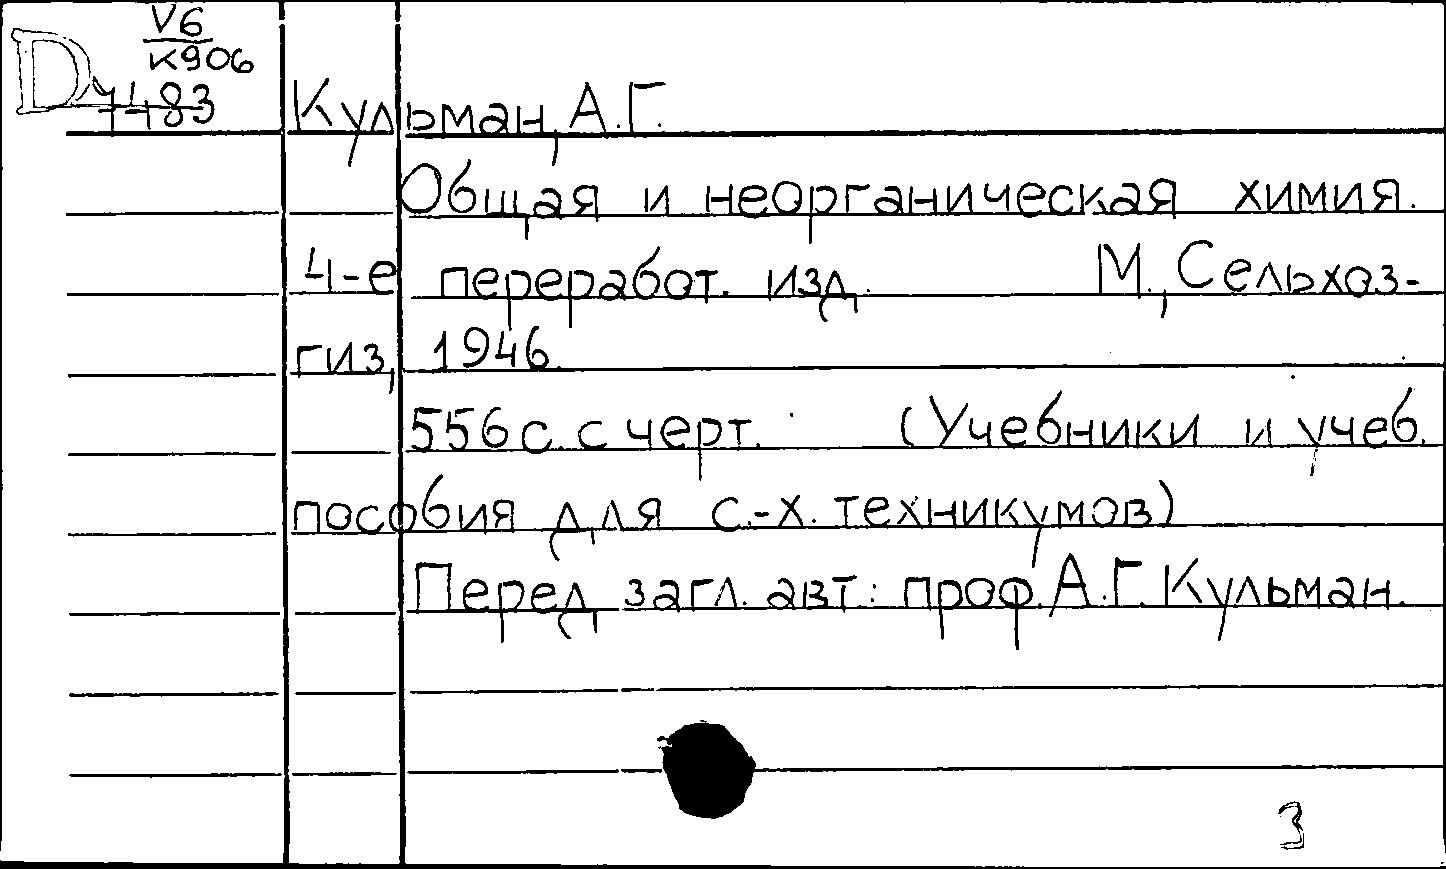 V6
K906
D 7483
Кульман, А.Г.
Общая и неорганическая химия.
4-е переработ. изд. М., Сельхоз-
гиз, 1946.
556 с. с черт. (Учебники и учеб.
пособия для с.-х. техникумов)
Перед загл. авт.: проф. А.Г. Кульман.
3